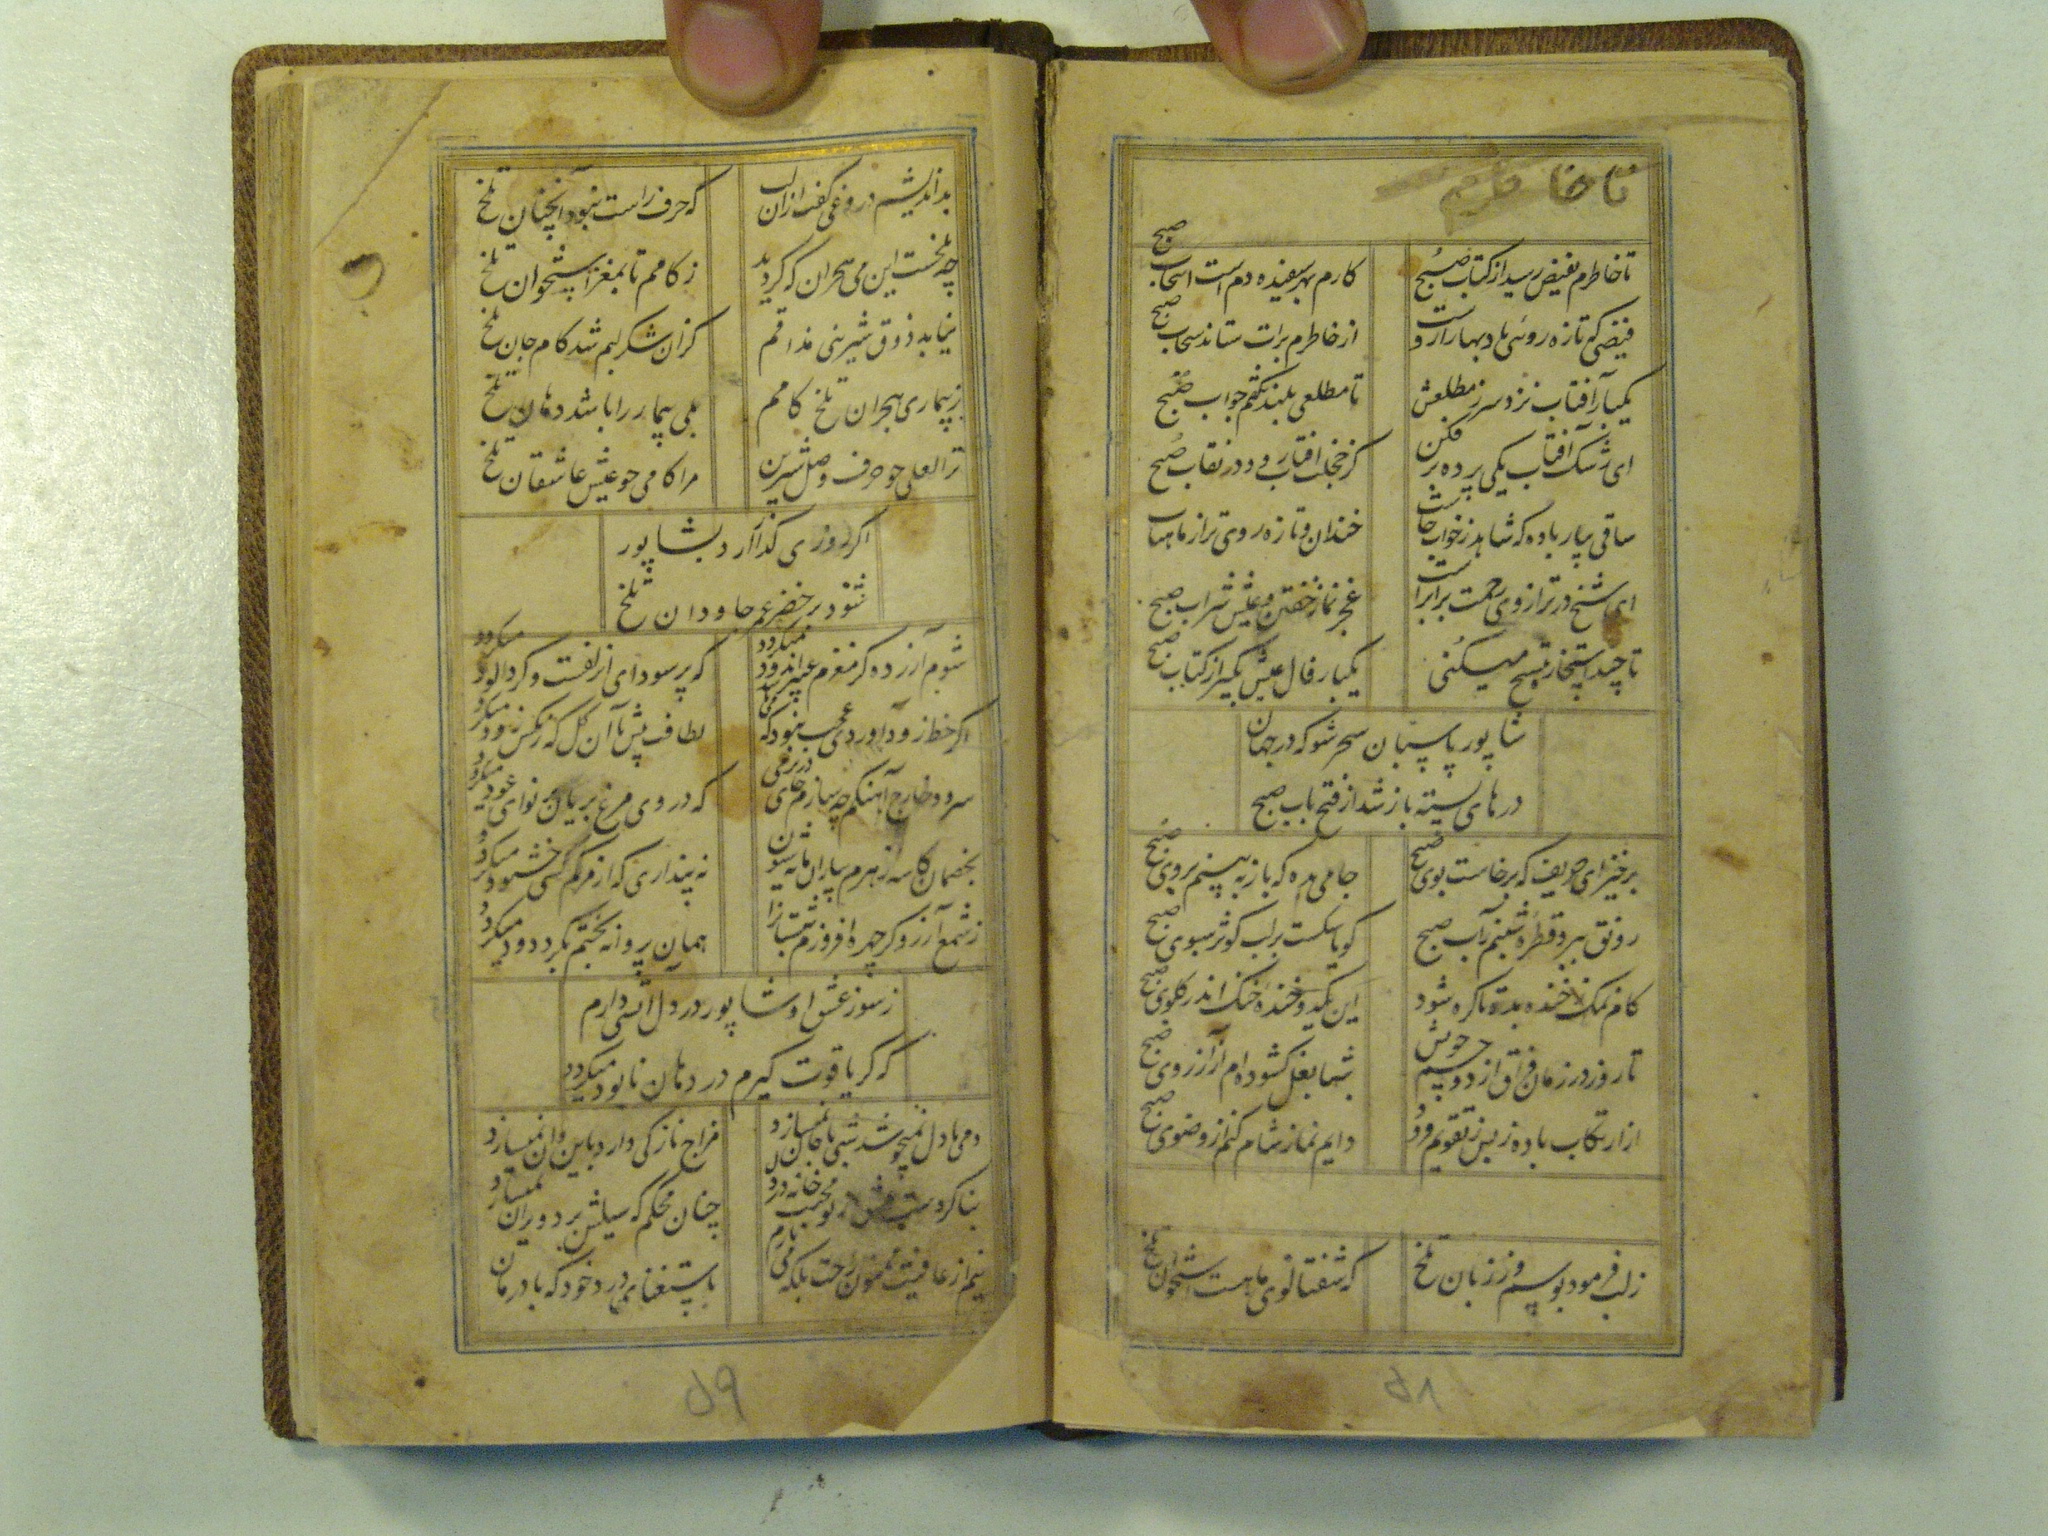 تا خا
تا خاطرم بفیض رسید از کتاب صبح
کارم بهر سفیده دم است انتخاب صبح
فیضی که تازه روئی باد بهار ازوست
از خاطرم برات ستاند سحاب صبح
یکبار آفتاب نزد سر ز مطلعش
تا مطلعی بلند نگفتم جواب صبح
ای رشک آفتاب یکی پرده بر فکن
کز خجلت آفتاب رود در نقاب صبح
ساقی بیار باده که شاهد ز خواب خاست
خندان و تازه روی تر از ماهتاب
ای شیخ در ترازوی رحمت برابر است
عجز نماز خفتن و عیش شراب صبح
تا چند استخاره تسبیح میکنی
یکبار فال عیش بگیر از کتاب صبح
شاپور پاسبان سحر شو که در جهان
درهای بسته باز شد از فتح باب صبح
برخیز ای حریف که برخاست بوی صبح
جامی بده که باز ببینم بروی صبح
رونق ببرد قطره شبنم ز آب صبح
گویا شکست بر لب کوثر سبوی صبح
کام نمک ز خنده بده تا گره شود
این یکدو خنده خنک اندر گلوی صبح
تا روز در زمان فراق از دو چشم خویش
شبها بغل گشوده ام از آرزوی صبح
از ارتکاب باده ز بس تقویم
دایم نماز شام کنم از وضوی صبح
ز لب فرمود بوسم وز زبان تلخ
که شفتالوی ما هست استخوان تلخ
بد اندیشم دروغی گفت از آن لب
که حرف راست نبود آنچنان تلخ
چه تلخست این می هجران که گردید
ز کامم تا بمغز استخوان تلخ
نیابد ذوق شیرینی مذاقم
کزان شکر لبم شد کام جان تلخ
ز بیماری هجران تلخ کامم
بلی بیمار را باشد دهان تلخ
ترا لعلی چو حرف وصل شیرین
مرا کامی چو عیش عاشقان تلخ
اگر روزی گذار آرد بشاپور
شود بر خضر عمر جاودان تلخ
شوم آزرده گر مغزم عبیر اندود میکردد
که پر سودای از لفت و کرد الود میکردد
اگر خط زود آوردی عجب نبود که
لطافت پیش با آن گل که رنگش زود میکردد
سرود خارج آهنگم چه سازم جای در بزمی
که در وی مرغ بریان به نوای عود میکردد
بخصمان کاسه زهرم بیاران
نه پنداری که از مرگم کسی خشنود میکردد
ز شمع آرزو گر چهره افروزم
همان پروانه بختم بگرد دود میکردد
ز سوز عشق او شاپور در دل آتشی دارم
که گر یاقوت گیرم در دهان نابود میکردد
دمی با دل نمیجوشد شبی با جان نمیسازد
مزاج نازکی دارد باین و آن نمیسازد
بنا کرد ست عشق از نو محبت خانه در دل
چنان محکم که سیلش برد و ویران نمیسازد
نیم از عافیت ممنون راحت بلکه می نازم
باستغنای درد خود که با درمان
۵۸
۵۹